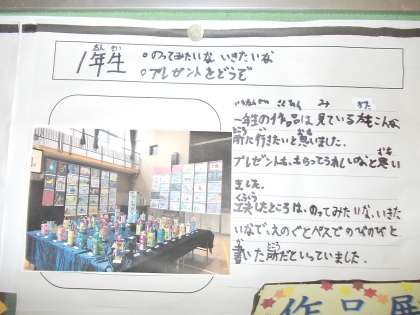 1年生
ねんせい
○のってみたいな いきたいな
○プレゼントをどうぞ
いちねんせい さくひん み
一年生の作品は見ているとこんな
所に行きたいと思いました。
プレゼントも、もらってうれしいなと思い
ました。
くふう
工夫したところは、のってみたいな、いきた
いなで、えのぐとペスでのびのびと
書いた所だといっていました。
作品展